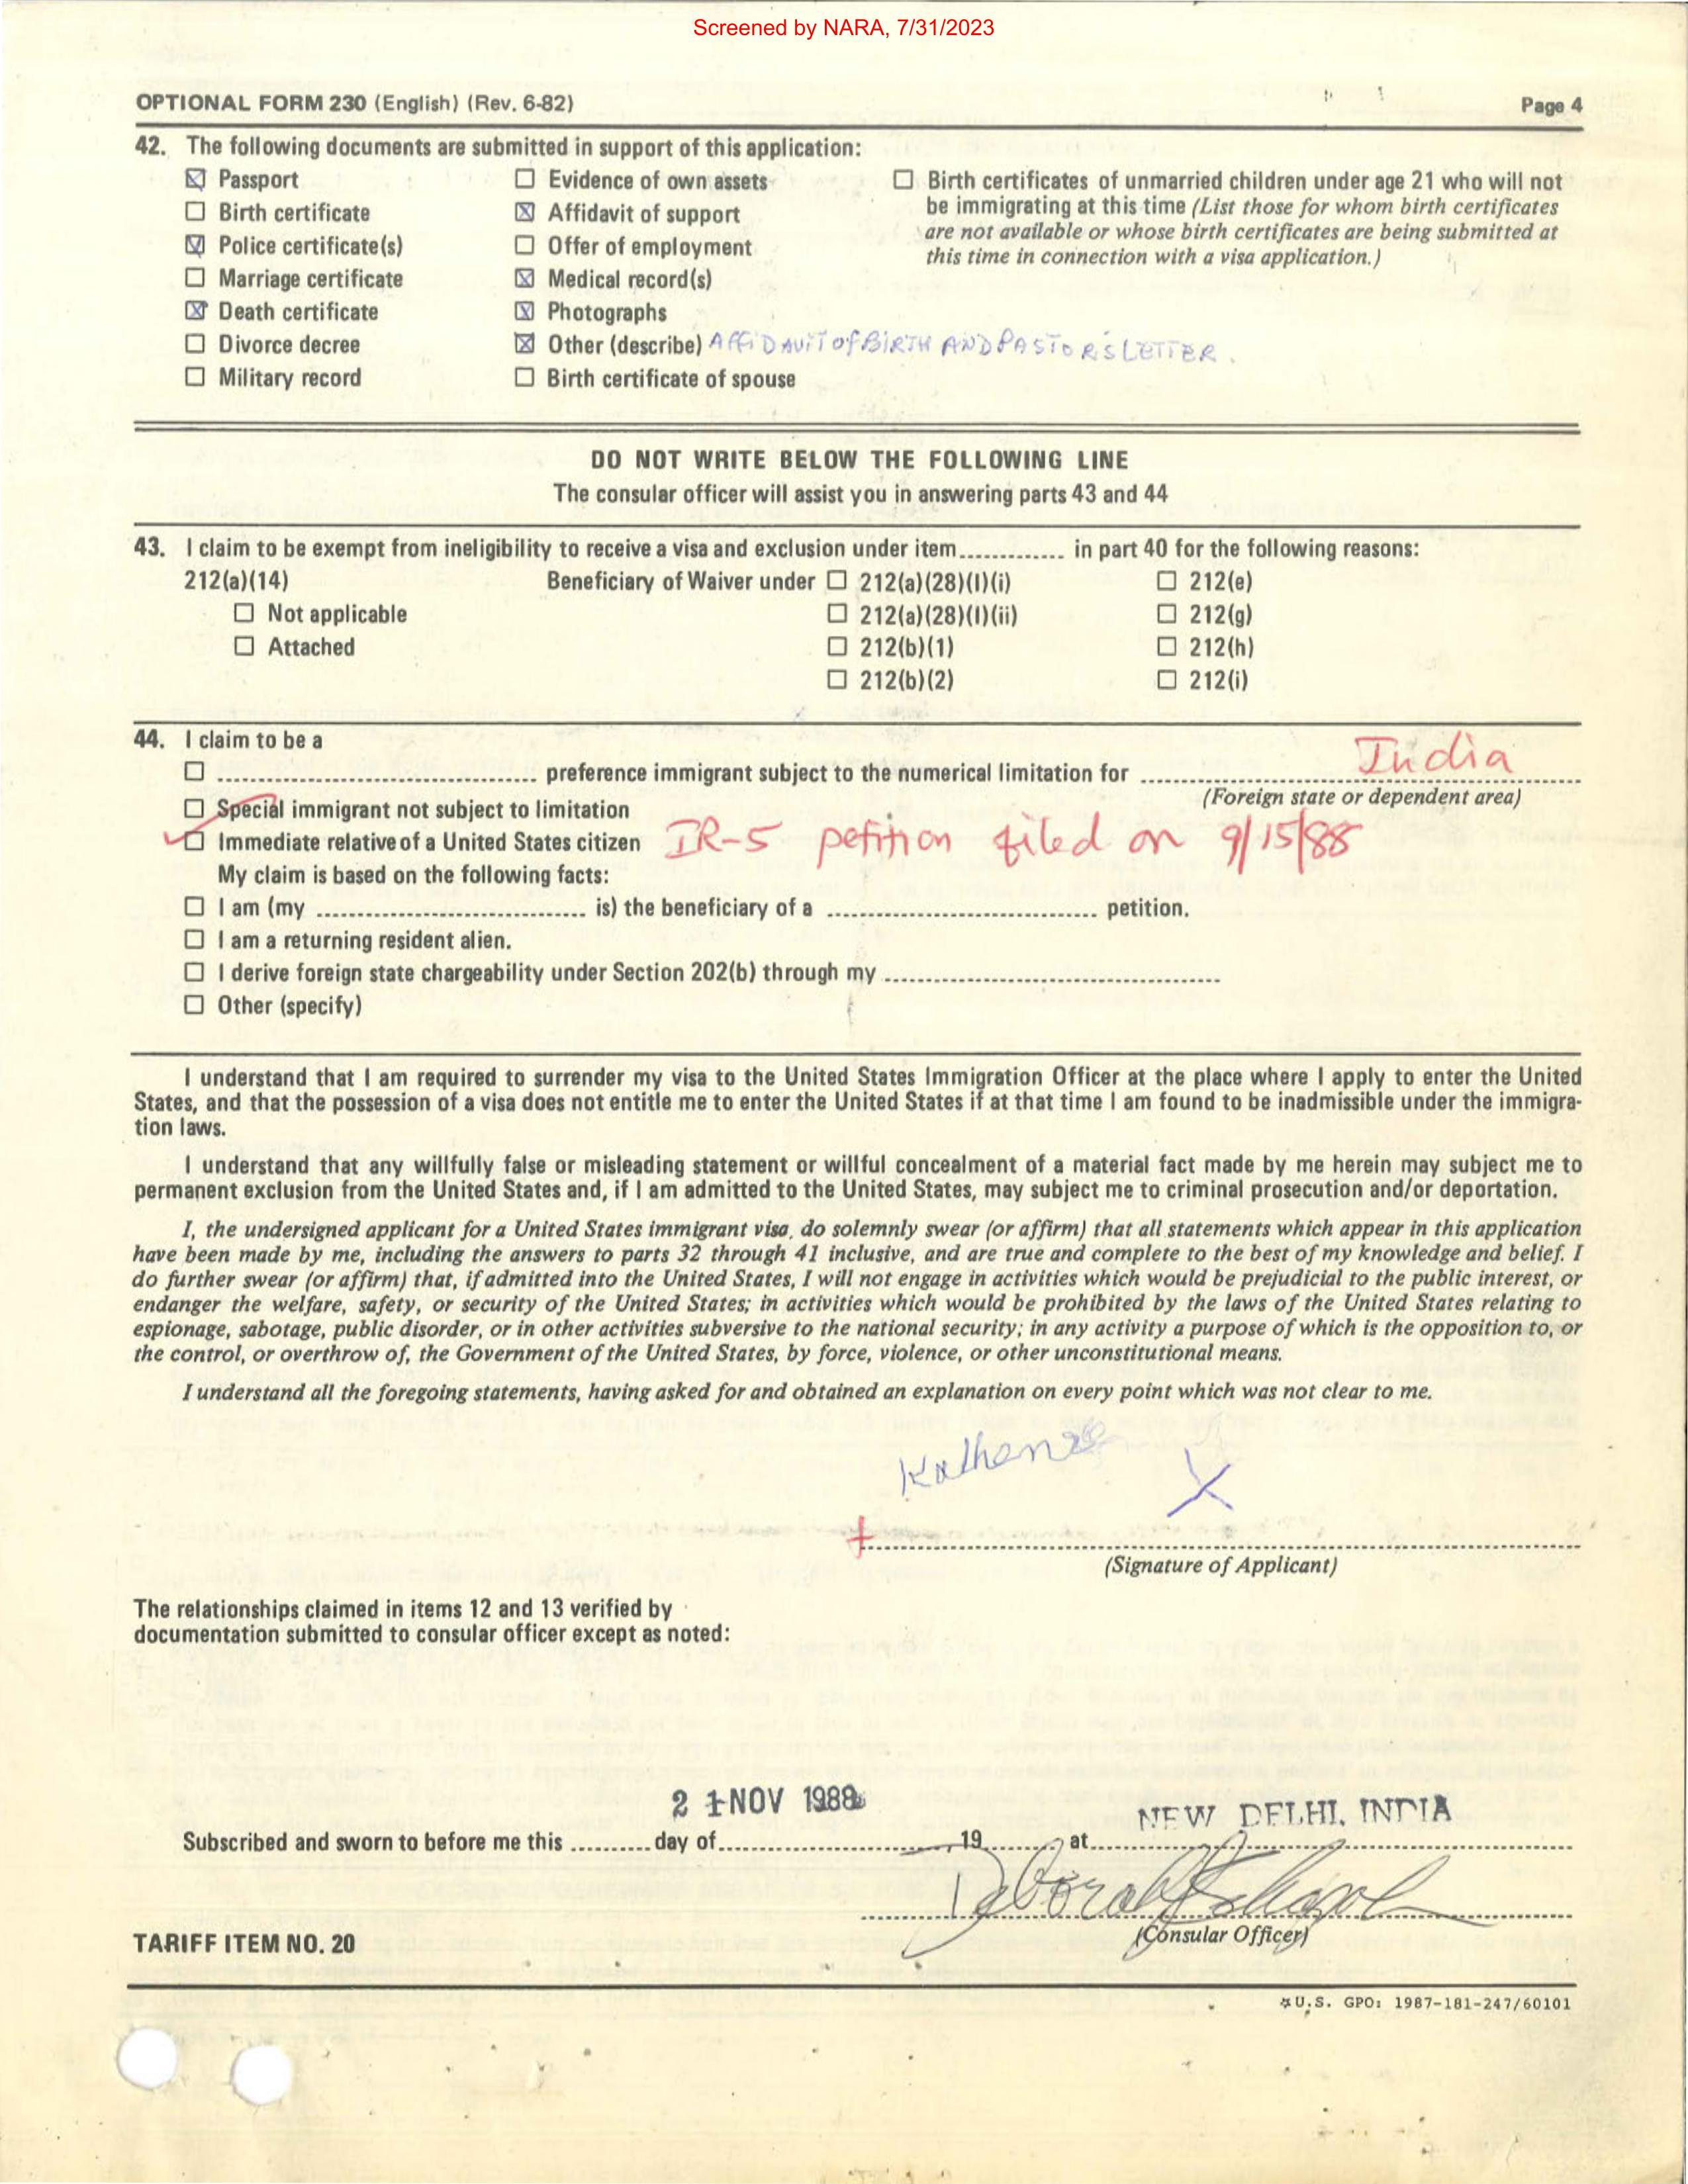 Screened by NARA, 7/31/2023
OPTIONAL FORM 230 (English) (Rev. 6-82) Page 4
42. The following documents are submitted in support of this application:
☒ Passport ☐ Evidence of own assets ☐ Birth certificates of unmarried children under age 21 who will not
☐ Birth certificate ☒ Affidavit of support be immigrating at this time (List those for whom birth certificates
☒ Police certificate(s) ☐ Offer of employment are not available or whose birth certificates are being submitted at
☐ Marriage certificate ☒ Medical record(s) this time in connection with a visa application.)
☒ Death certificate ☒ Photographs
☐ Divorce decree ☒ Other (describe) AFFIDAVIT OF BIRTH AND PASTOR'S LETTER.
☐ Military record ☐ Birth certificate of spouse
DO NOT WRITE BELOW THE FOLLOWING LINE
The consular officer will assist you in answering parts 43 and 44
43. I claim to be exempt from ineligibility to receive a visa and exclusion under item ............ in part 40 for the following reasons:
212(a)(14) Beneficiary of Waiver under ☐ 212(a)(28)(I)(i) ☐ 212(e)
☐ Not applicable ☐ 212(a)(28)(I)(ii) ☐ 212(g)
☐ Attached ☐ 212(b)(1) ☐ 212(h)
☐ 212(b)(2) ☐ 212(i)
44. I claim to be a
☐ .................................. preference immigrant subject to the numerical limitation for ............ India ............
(Foreign state or dependent area)
☐ Special immigrant not subject to limitation
☑ Immediate relative of a United States citizen IR-5 petition filed on 9/15/88
My claim is based on the following facts:
☐ I am (my .............................. is) the beneficiary of a .............................. petition.
☐ I am a returning resident alien.
☐ I derive foreign state chargeability under Section 202(b) through my ....................................
☐ Other (specify)
I understand that I am required to surrender my visa to the United States Immigration Officer at the place where I apply to enter the United
States, and that the possession of a visa does not entitle me to enter the United States if at that time I am found to be inadmissible under the immigra-
tion laws.
I understand that any willfully false or misleading statement or willful concealment of a material fact made by me herein may subject me to
permanent exclusion from the United States and, if I am admitted to the United States, may subject me to criminal prosecution and/or deportation.
I, the undersigned applicant for a United States immigrant visa, do solemnly swear (or affirm) that all statements which appear in this application
have been made by me, including the answers to parts 32 through 41 inclusive, and are true and complete to the best of my knowledge and belief. I
do further swear (or affirm) that, if admitted into the United States, I will not engage in activities which would be prejudicial to the public interest, or
endanger the welfare, safety, or security of the United States; in activities which would be prohibited by the laws of the United States relating to
espionage, sabotage, public disorder, or in other activities subversive to the national security; in any activity a purpose of which is the opposition to, or
the control, or overthrow of, the Government of the United States, by force, violence, or other unconstitutional means.
I understand all the foregoing statements, having asked for and obtained an explanation on every point which was not clear to me.
X
(Signature of Applicant)
The relationships claimed in items 12 and 13 verified by
documentation submitted to consular officer except as noted:
21 NOV 1988 NEW DELHI, INDIA
Subscribed and sworn to before me this .......... day of ........................, 19........ at ........................
Deborah
(Consular Officer)
TARIFF ITEM NO. 20
☆U.S. GPO: 1987-181-247/60101